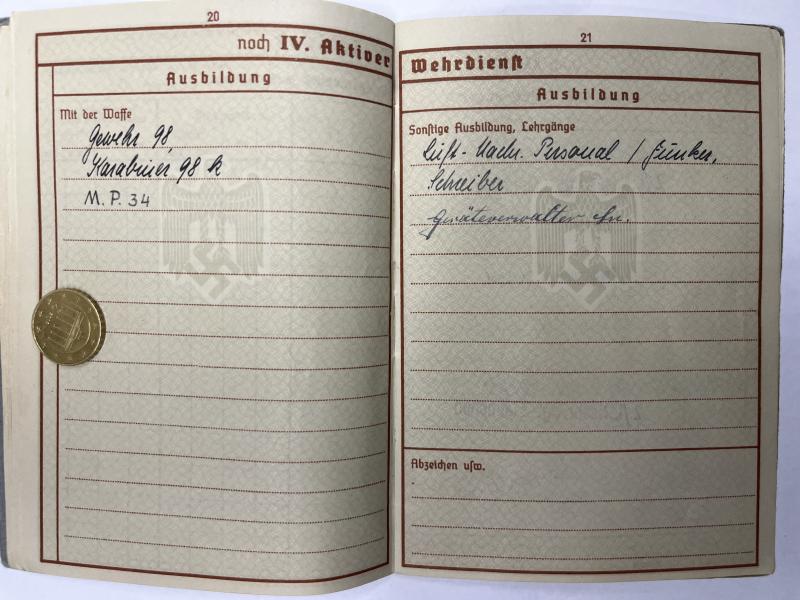 20
noch IV. Aktiver
Ausbildung
Mit der Waffe
Gewehr 98,
Karabiner 98 k
M. P. 34
21
Wehrdienst
Ausbildung
Sonstige Ausbildung, Lehrgänge
Luft-Nachr. Personal / Funker,
Schreiber
Geräteverwalter
Abzeichen usw.